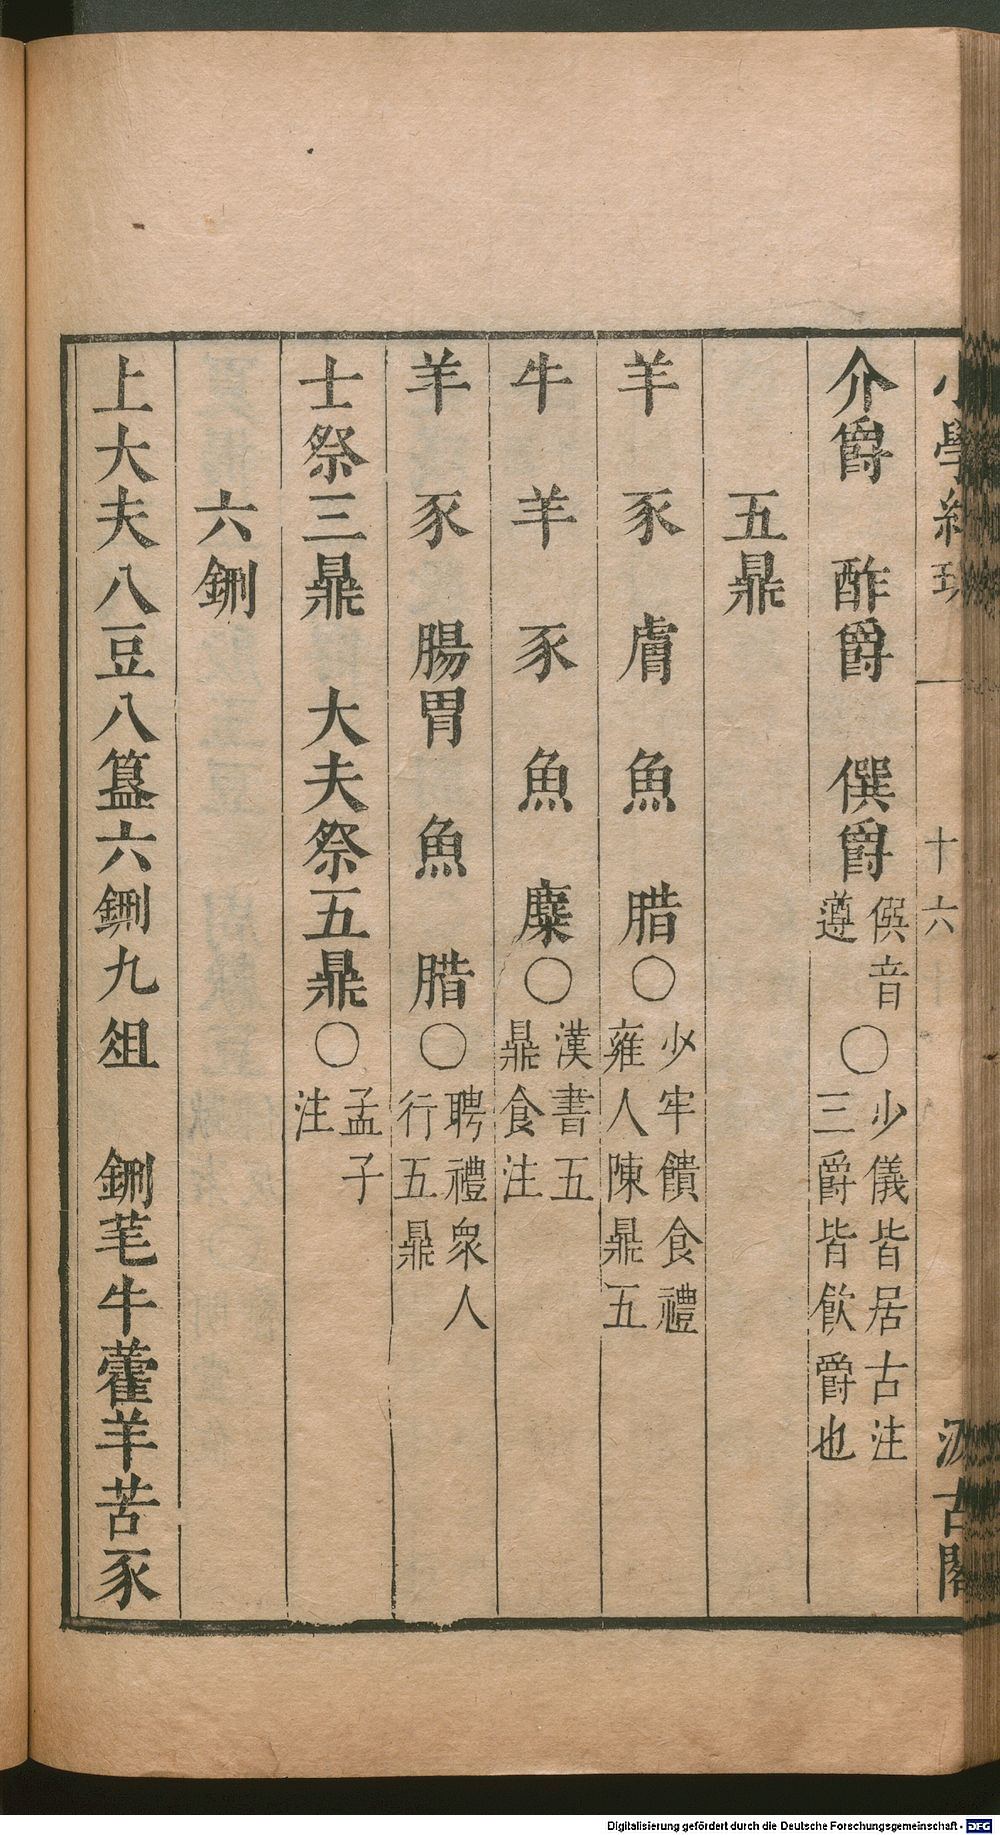 小學紺珠 十六 汲古閣
介爵 酢爵 僎爵 僎音遵 ○ 少儀皆居右注三爵皆飲爵也
五鼎
羊 豕 膚 魚 腊 ○ 少牢饋食禮雍人陳鼎五
牛 羊 豕 魚 麋 ○ 漢書五鼎食注
羊 豕 腸胃 魚 腊 ○ 聘禮衆人行五鼎
士祭三鼎 大夫祭五鼎 ○ 孟子注
六鉶
上大夫八豆八簋六鉶九俎 鉶芼牛藿羊苦豕
Digitalisierung gefördert durch die Deutsche Forschungsgemeinschaft - DFG